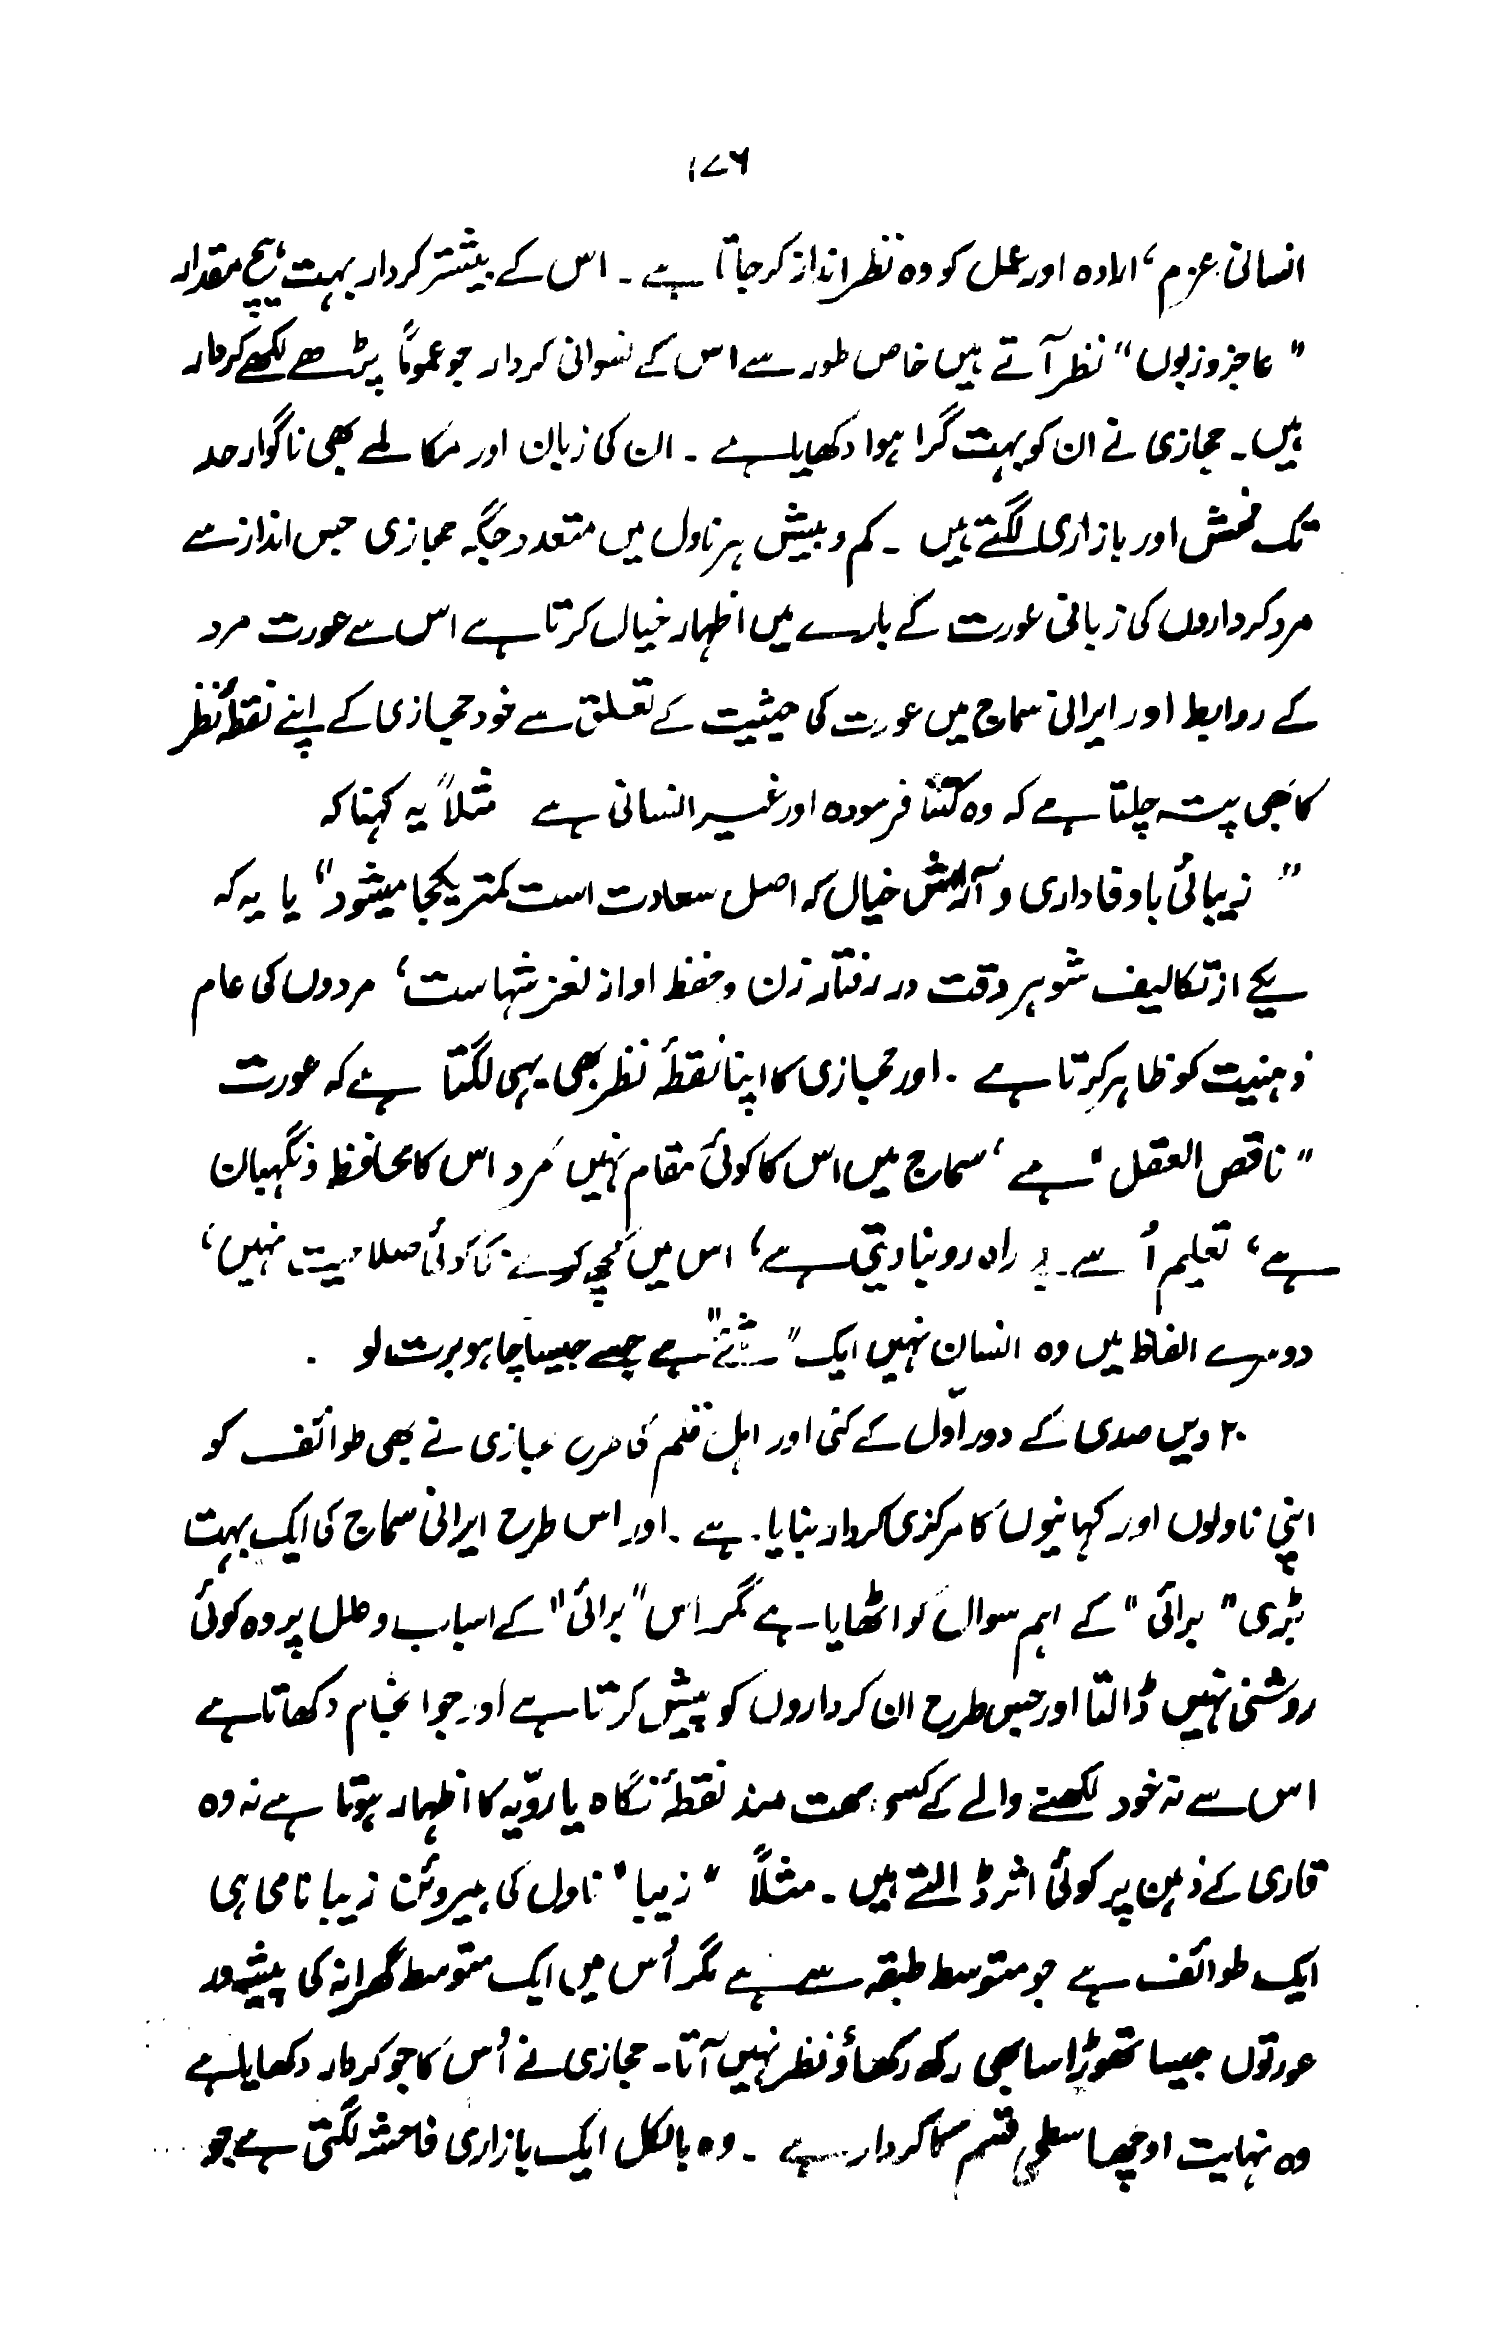 ۱۷۶
انسانی عزم، ارادہ اور عمل کو وہ نظر انداز کر جاتا ہے۔ اس کے بیشتر کردار بہت ہیچ مقدار
"عاجز و زبوں" نظر آتے ہیں خاص طور سے اس کے نسوانی کردار جو عموماً پڑھے لکھے کردار
ہیں۔ حجازی نے ان کو بہت گرا ہوا دکھایا ہے۔ ان کی زبان اور مکالمے بھی ناگوار حد
تک فحش اور بازاری لگتے ہیں۔ کم و بیش ہر ناول میں متعدد جگہ حجازی جس انداز سے
مرد کرداروں کی زبانی عورت کے بارے میں اظہار خیال کرتا ہے اس سے عورت مرد
کے روابط اور ایرانی سماج میں عورت کی حیثیت کے تعلق سے خود حجازی کے اپنے نقطۂ نظر
کا بھی پتہ چلتا ہے کہ وہ کتنا فرسودہ اور غیر انسانی ہے مثلاً یہ کہنا کہ
"زیبائی با وفاداری و آرامش خیال کہ اصل سعادت است کمتر یکجا میشود" یا یہ کہ
یکے از تکالیف شوہر دقت در رفتار زن و حفظ او از لغزشہاست، مردوں کی عام
ذہنیت کو ظاہر کرتا ہے۔ اور حجازی کا اپنا نقطۂ نظر بھی یہی لگتا ہے کہ عورت
"ناقص العقل" ہے، سماج میں اس کا کوئی مقام نہیں مرد اس کا محافظ و نگہبان
ہے، تعلیم اُسے بے راہ رو بنا دیتی ہے، اس میں کچھ کرنے کا کوئی صلاحیت نہیں،
دوسرے الفاظ میں وہ انسان نہیں ایک "شئے" ہے جسے جیسا چاہو برت لو۔
۲۰ ویں صدی کے دور اوّل کے کئی اور اہل قلم کی طرح حجازی نے بھی طوائف کو
اپنی ناولوں اور کہانیوں کا مرکزی کردار بنایا ہے۔ اور اس طرح ایرانی سماج کی ایک بہت
بڑی "برائی" کے اہم سوال کو اٹھایا ہے مگر اس "برائی" کے اسباب و علل پر وہ کوئی
روشنی نہیں ڈالتا اور جس طرح ان کرداروں کو پیش کرتا ہے اور جو انجام دکھاتا ہے
اس سے نہ خود لکھنے والے کے کسی صحت مند نقطۂ نگاہ یا رویّہ کا اظہار ہوتا ہے نہ وہ
قاری کے ذہن پر کوئی اثر ڈالتے ہیں۔ مثلاً "زیبا" ناول کی ہیروئن زیبا نامی ہی
ایک طوائف ہے جو متوسط طبقہ سے ہے مگر اُس میں ایک متوسط گھرانہ کی پیشہ ور
عورتوں جیسا تھوڑا سا بھی رکھ رکھاؤ نظر نہیں آتا۔ حجازی نے اُس کا جو کردار دکھایا ہے
وہ نہایت اوچھا سطحی قسم کا کردار ہے۔ وہ بالکل ایک بازاری فاحشہ لگتی ہے جو